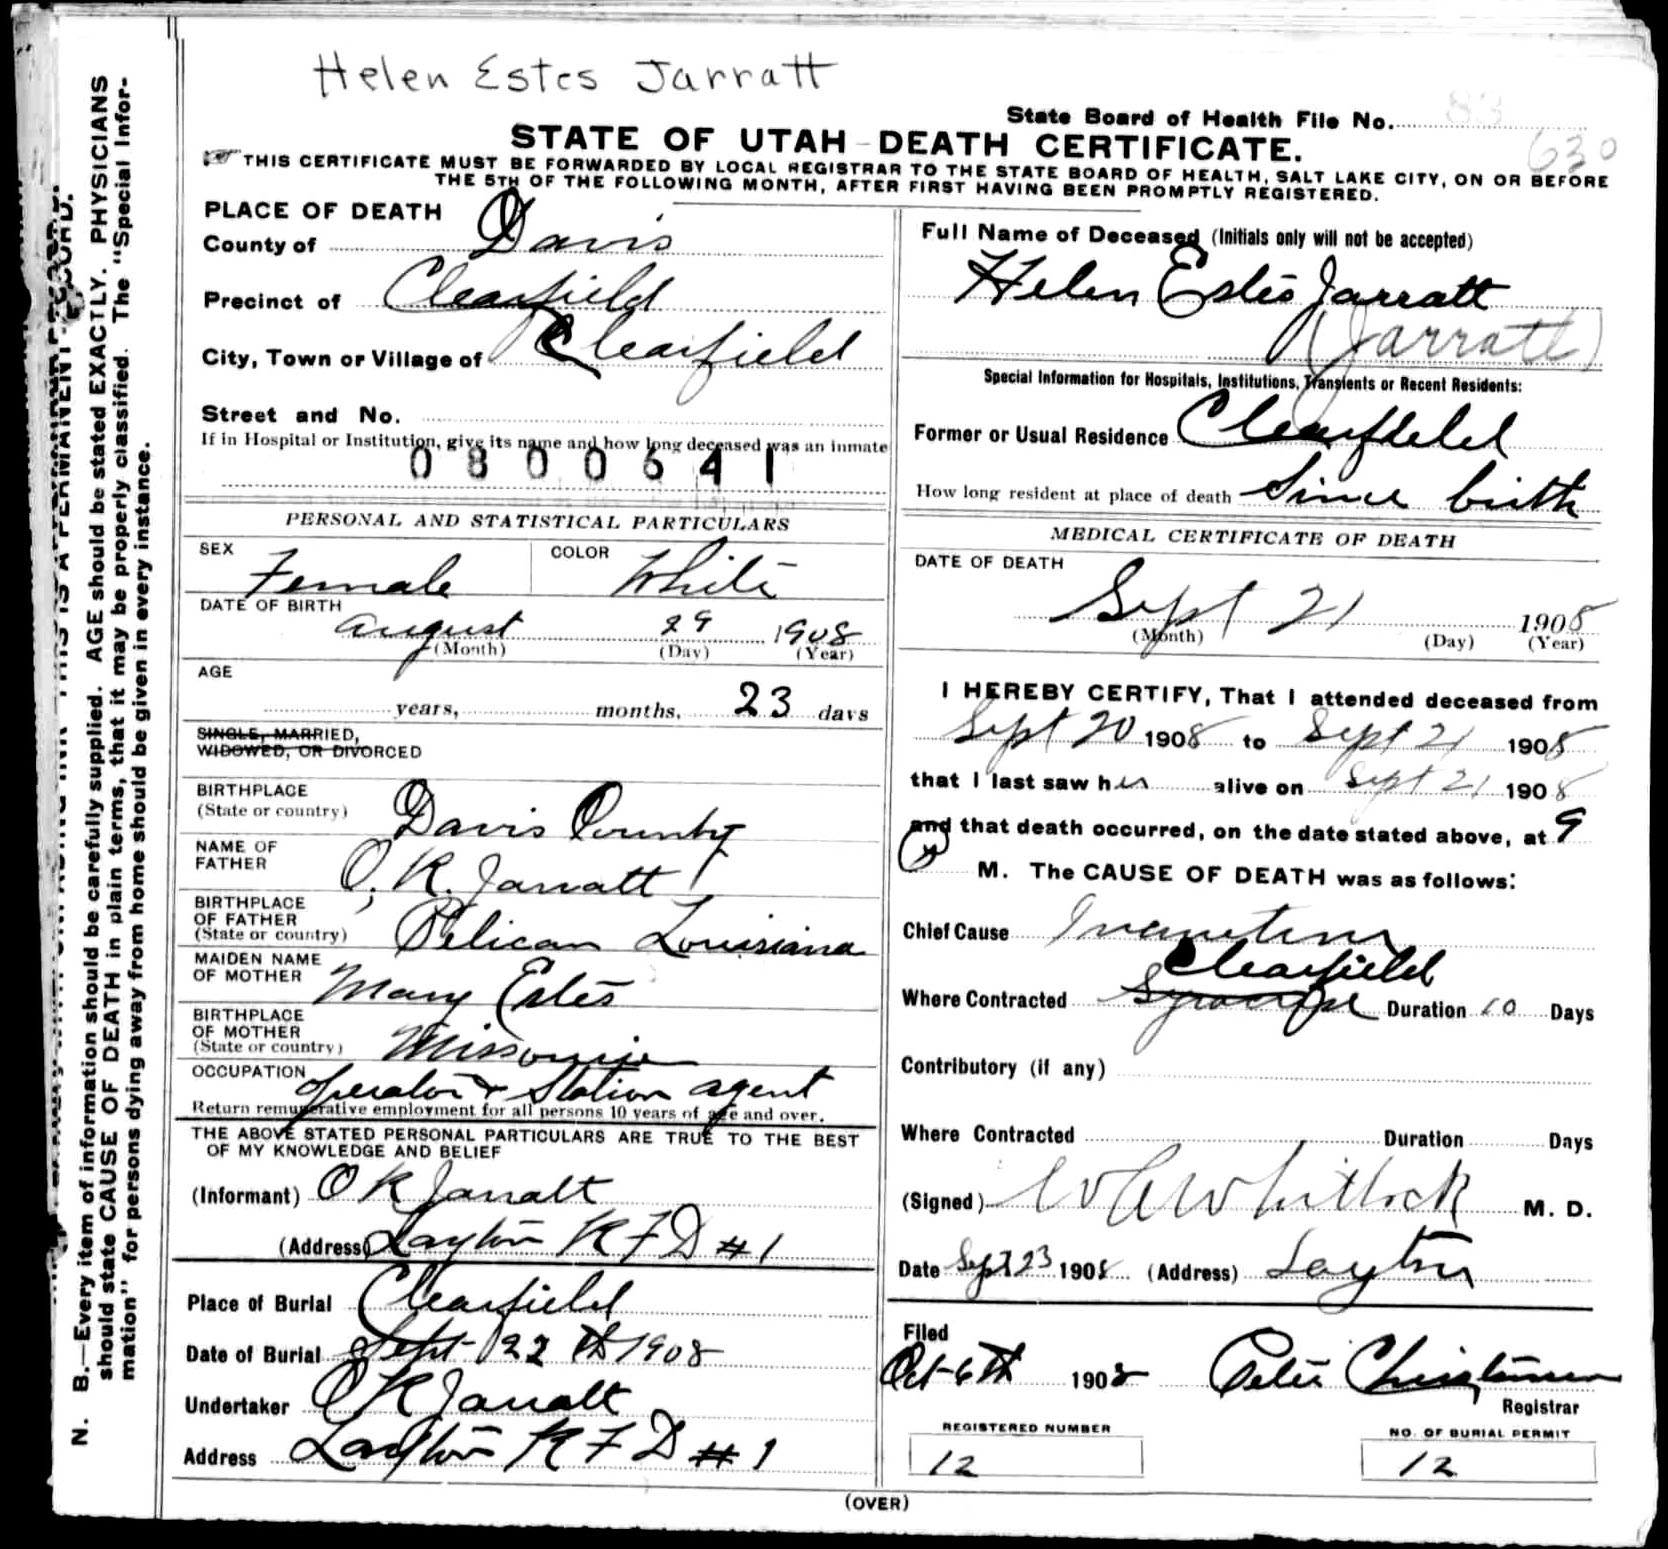 Helen Estes Jarratt
State Board of Health File No. 83
630
STATE OF UTAH-DEATH CERTIFICATE.
THIS CERTIFICATE MUST BE FORWARDED BY LOCAL REGISTRAR TO THE STATE BOARD OF HEALTH, SALT LAKE CITY, ON OR BEFORE
THE 5TH OF THE FOLLOWING MONTH, AFTER FIRST HAVING BEEN PROMPTLY REGISTERED.
PLACE OF DEATH
County of Davis
Precinct of Clearfield
City, Town or Village of Clearfield
Street and No.
If in Hospital or Institution, give its name and how long deceased was an inmate
0800641
PERSONAL AND STATISTICAL PARTICULARS
SEX Female COLOR White
DATE OF BIRTH
August 29 1908
(Month) (Day) (Year)
AGE
years, months, 23 days
SINGLE, MARRIED,
WIDOWED, OR DIVORCED
BIRTHPLACE
(State or country) Davis County
NAME OF
FATHER O. R. Jarratt
BIRTHPLACE
OF FATHER
(State or country) Pelican Louisiana
MAIDEN NAME
OF MOTHER Mary Estes
BIRTHPLACE
OF MOTHER
(State or country) Missourie
OCCUPATION operator & Station agent
Return remunerative employment for all persons 10 years of age and over.
THE ABOVE STATED PERSONAL PARTICULARS ARE TRUE TO THE BEST
OF MY KNOWLEDGE AND BELIEF
(Informant) O R Jarratt
(Address) Layton R F D #1
Place of Burial Clearfield
Date of Burial Sept 22 th 1908
Undertaker O R Jarratt
Address Layton R F D #1
Full Name of Deceased (Initials only will not be accepted)
Helen Estes Jarratt
(Jarratt)
Special Information for Hospitals, Institutions, Transients or Recent Residents:
Former or Usual Residence Clearfield
How long resident at place of death Since birth
MEDICAL CERTIFICATE OF DEATH
DATE OF DEATH
Sept 21 1908
(Month) (Day) (Year)
I HEREBY CERTIFY, That I attended deceased from
Sept 20 1908 to Sept 21 1908
that I last saw her alive on Sept 21 1908
and that death occurred, on the date stated above, at 9
M. The CAUSE OF DEATH was as follows:
Chief Cause Inanition
Clearfield
Where Contracted Syracuse Duration 10 Days
Contributory (if any)
Where Contracted Duration Days
(Signed) W A Whitlock M. D.
Date Sept 23 1908 (Address) Layton
Filed
Oct 6th 1908 Peter Christensen
Registrar
REGISTERED NUMBER
12
NO. OF BURIAL PERMIT
12
(OVER)
N. B.—Every item of information should be carefully supplied. AGE should be stated EXACTLY. PHYSICIANS
should state CAUSE OF DEATH in plain terms, that it may be properly classified. The "Special Infor-
mation" for persons dying away from home should be given in every instance.